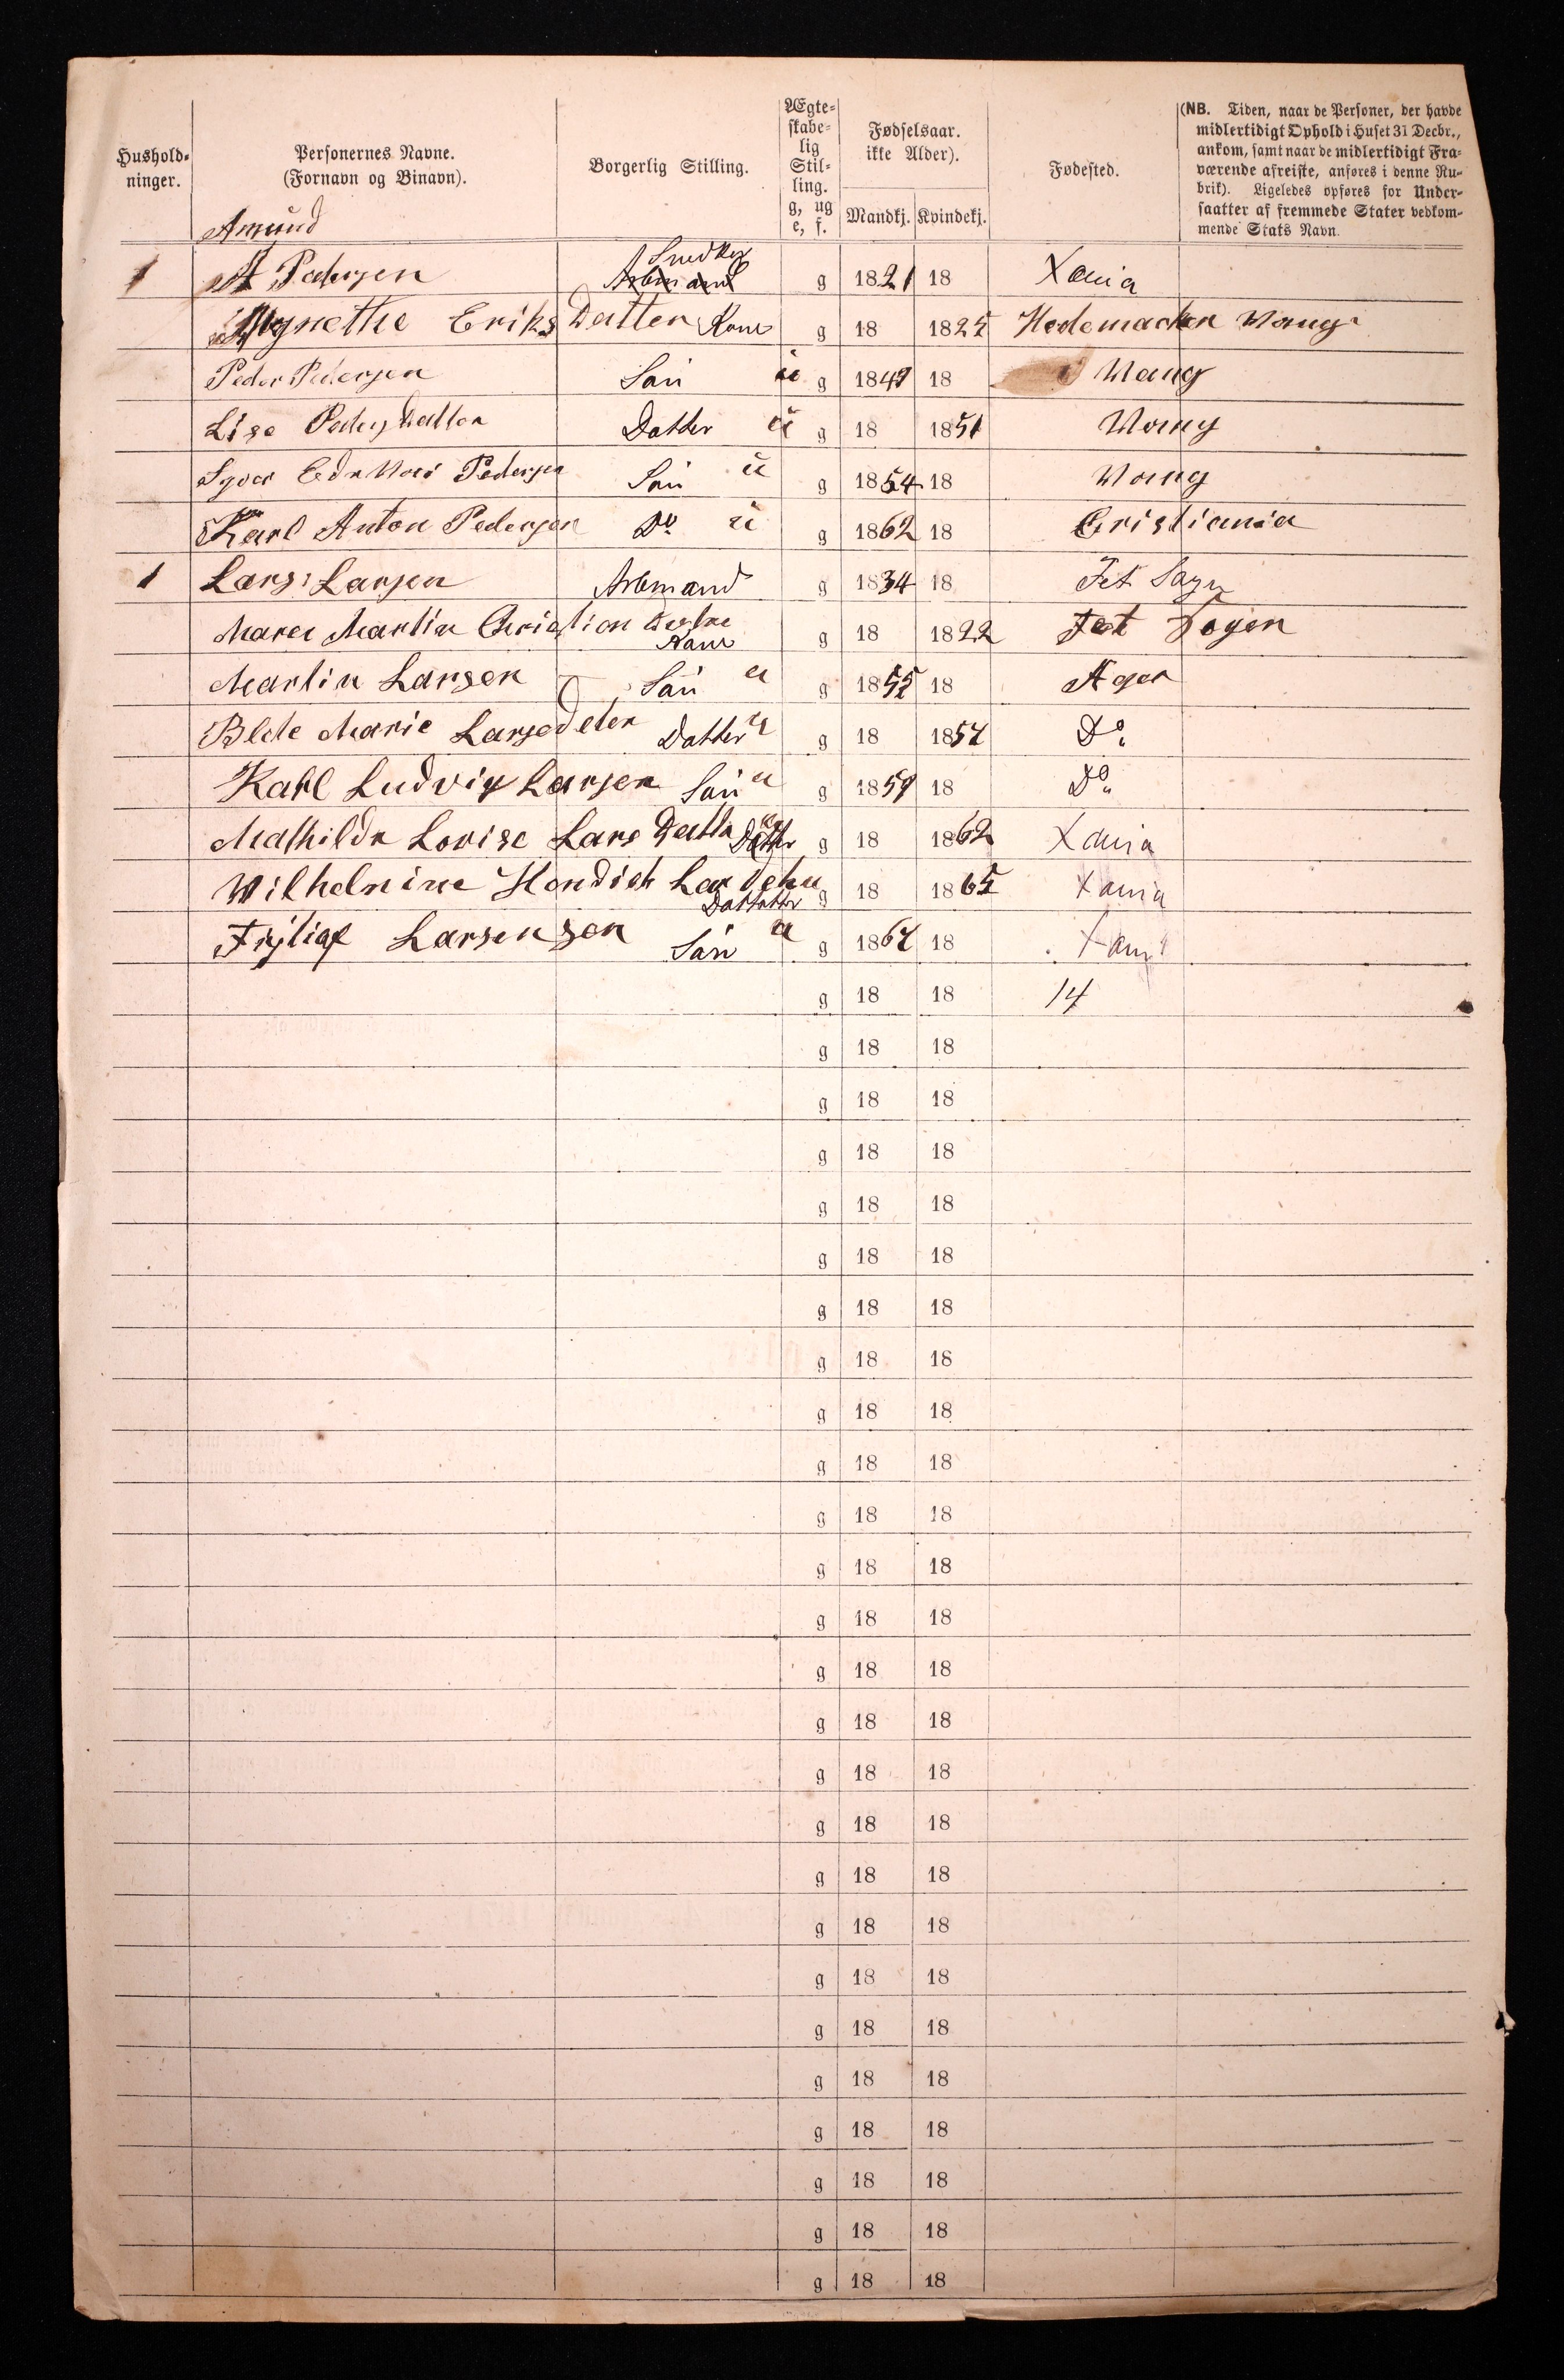 Hushold-
ninger.
Personernes Navne.
(Fornavn og Binavn).
Borgerlig Stilling.
Ægte-
skabe-
lig
Stil-
ling.
g, ug
e, f.
Fødselsaar.
ikke Alder).
Mandkj. Kvindekj.
Fødested.
(NB. Tiden, naar de Personer, der havde
midlertidigt Ophold i Huset 31 Decbr.,
ankom, samt naar de midlertidigt Fra-
værende afreiste, anføres i denne Ru-
brik). Ligeledes opføres for Under-
saatter af fremmede Stater vedkom-
mende Stats Navn.
Amund
Snedker
1 A Pedersen Arbmand g 1821 18 Xania
Agnethe Eriks Datter Kone g 18 1825 Hedemarken Wang
Peder Pedersen Søn u g 1849 18 Wang
Lise Peders Datter Datter u g 18 1851 Wang
Pedersen Søn u g 1854 18 Wang
Karl Anton Pedersen Do u g 1862 18 Cristiania
1 Lars Larsen Arbmand g 1834 18 Fet Sogn
Maren Martin Christian Kone g 18 1822 Fet Sogen
Martin Larsen Søn u g 1855 18 Ager
Marie Larsedeter Datter u g 18 1857 Do
Karl Ludvig Larsen Søn u g 1859 18 Do
Mathilda Lovise Lars Datter Datter g 18 1862 Xania
Wilhelmine g 18 1865 Xania
Larsen Søn u g 1867 18 Xani
g 18 18 14
g 18 18
g 18 18
g 18 18
g 18 18
g 18 18
g 18 18
g 18 18
g 18 18
g 18 18
g 18 18
g 18 18
g 18 18
g 18 18
g 18 18
g 18 18
g 18 18
g 18 18
g 18 18
g 18 18
g 18 18
g 18 18
g 18 18
g 18 18
g 18 18
g 18 18